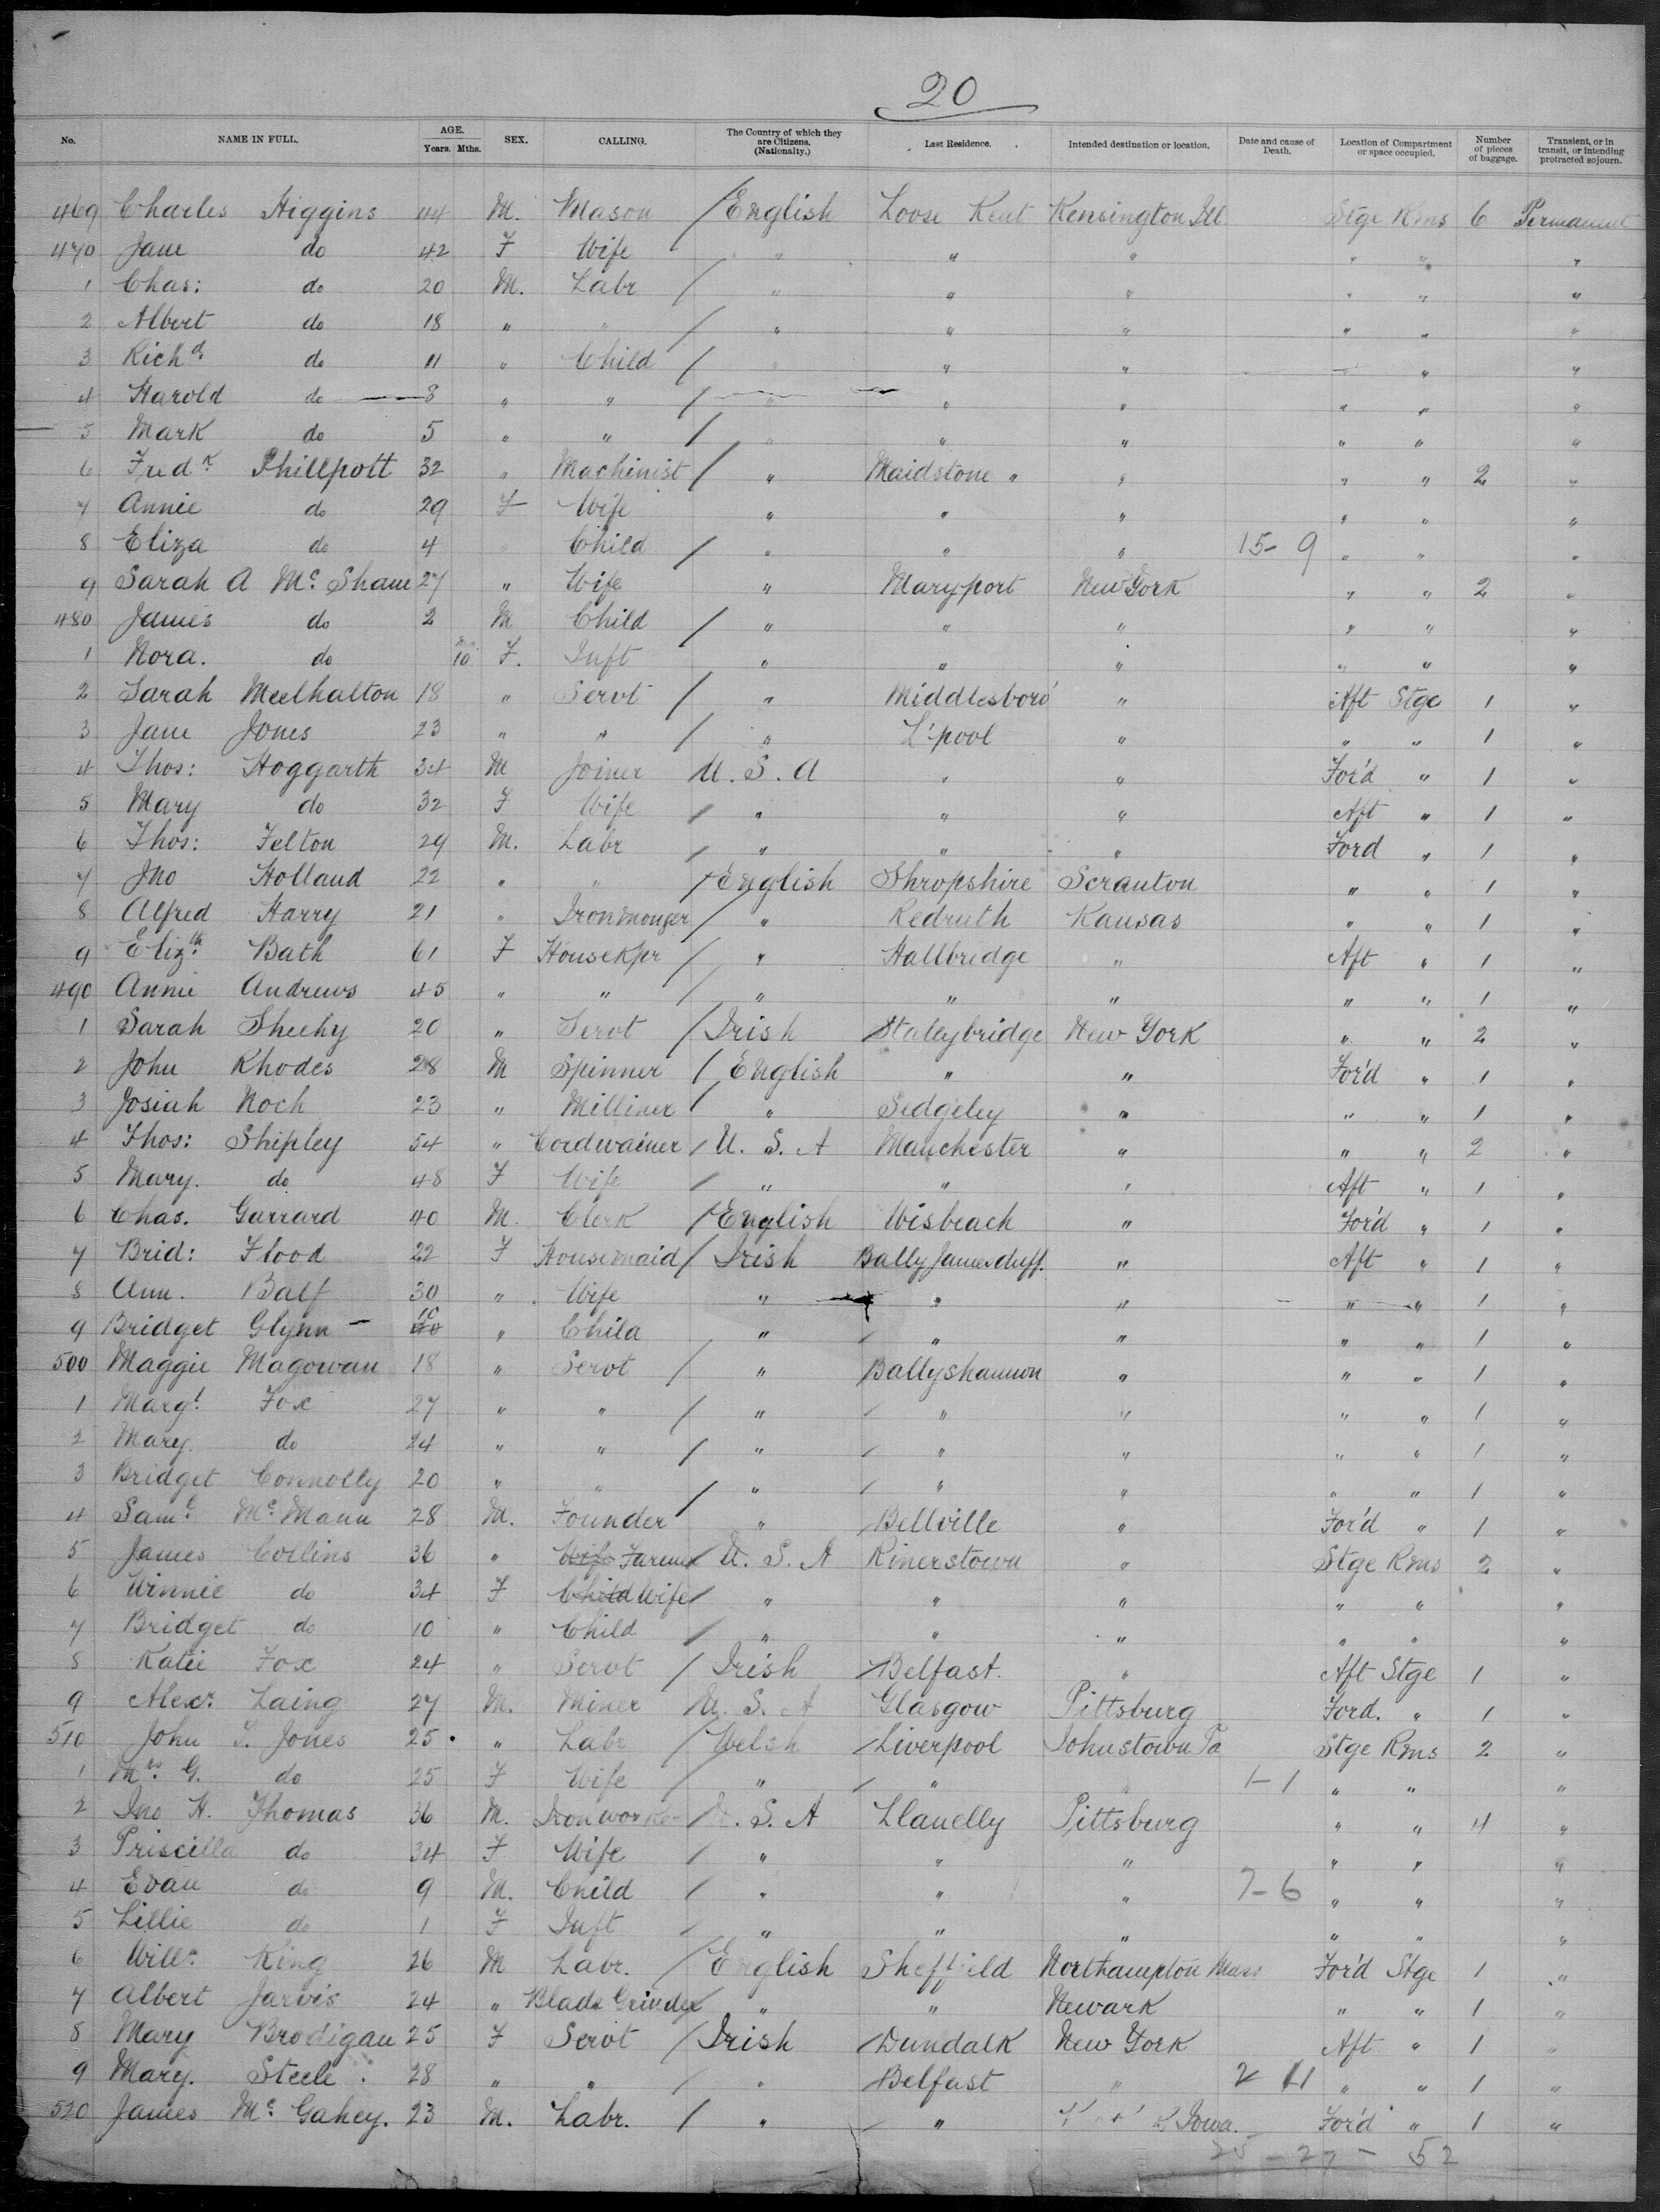 20
No. NAME IN FULL. AGE. Years. Mths. SEX. CALLING. The Country of which they are Citizens. (Nationalty.) Last Residence. Intended destination or location. Date and cause of Death. Location of Compartment or space occupied. Number of pieces of baggage. Transient, or in transit, or intending protracted sojourn.
469 Charles Higgins 44 M. Mason / English Loose Kent Kensington Ill Stge Rms 6 Permanent
470 Jane do 42 F Wife " " " " " "
1 Chas: do 20 M. Labr / " " " " " "
2 Albert do 18 " " / " " " " " "
3 Richd do 11 " Child / " " " " "
4 Harold do 8 " " / " " " " " "
5 Mark do 5 " " / " " " " " "
6 Fredk Phillpott 32 " Machinist / " Maidstone " " " " 2 "
7 Annie do 29 F Wife " " " " " "
8 Eliza do 4 Child / " " " 15-9 " " "
9 Sarah A McShane 27 " Wife " Maryport New York " " 2 "
480 James do 2 M Child / " " " " " "
1 Nora. do 10 F. Inft " " " " " "
2 Sarah Meelhalton 18 " Servt / " Middlesboro' " Aft Stge 1 "
3 Jane Jones 23 " " / " L'pool " " " 1 "
4 Thos: Hoggarth 34 M Joiner U.S.A " " For'd " 1 "
5 Mary do 32 F Wife / " " " Aft " 1 "
6 Thos: Felton 29 M. Labr / " " " Ford " 1 "
7 Jno Holland 22 " " / English Shropshire Scranton " " 1 "
8 Alfred Harry 21 " Ironmonger / " Redruth Kansas " " 1 "
9 Elizth Bath 61 F Housekpr / " Hallbredge " Aft " 1 "
490 Annie Andrews 45 " " / " " " " " 1 "
1 Sarah Sheehy 20 " Servt / Irish Staleybridge New York " " 2 "
2 John Rhodes 28 M Spinner / English " " For'd " 1 "
3 Josiah Noch 23 " Milliner / " Sedgeley " " " 1 "
4 Thos: Shipley 54 " Cordwainer / U.S.A Manchester " " " 2 "
5 Mary. do 48 F Wife / " " " Aft " 1 "
6 Chas. Garrard 40 M. Clerk / English Wisbeach " For'd " 1 "
7 Brid: Flood 22 F Housemaid / Irish Bally Jamesduff. " Aft " 1 "
8 Ann. Balf 30 " Wife " " " " " 1 "
9 Bridget Glynn 10 " Child " " " " " 1 "
500 Maggie Magowan 18 " Servt / " Ballyshannon " " " 1 "
1 Margt Fox 27 " " / " " " " " 1 "
2 Mary. do 24 " " / " " " " " 1 "
3 Bridget Connolly 20 " " / " " " " " 1 "
4 Saml McMann 28 M. Founder " Bellville " For'd " 1 "
5 James Collins 36 " Wife Farmer U.S.A Rinerstown " Stge Rms 2 "
6 Winnie do 34 F Child Wife / " " " " " "
7 Bridget do 10 " Child / " " " " " "
8 Katie Fox 24 " Servt / Irish Belfast. " Aft Stge 1 "
9 Alexr Laing 27 M. Miner U.S.A Glasgow Pittsburg Ford. " 1 "
510 John T. Jones 25 " Labr / Welsh Liverpool Johnstown Pa Stge Rms 2 "
1 Mrs G. do 25 F Wife / " " " 1-1 " " "
2 Jno H. Thomas 36 M. Ironworker U.S.A Llanelly Pittsburg " " 4 "
3 Priscilla do 34 F Wife / " " " " " "
4 Evan do 9 M. Child / " " " 7-6 " " "
5 Lillie do 1 F Inft " " " " " "
6 Willm King 26 M Labr. / English Sheffield Northampton Mass For'd Stge 1 "
7 Albert Jarvis 24 " Blade Grinder " " Newark " " 1 "
8 Mary Brodigan 25 F Servt / Irish Dundalk New York Aft " 1 "
9 Mary. Steele 28 " " / " Belfast " 2 11 " " 1 "
520 James McGahey. 23 M. Labr. / " " Iowa. For'd " 1 "
25-27-52